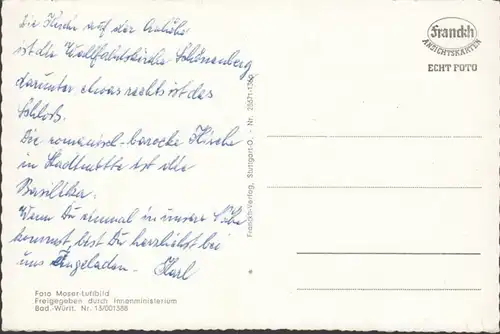 Die Kirche auf der Anhöhe
ist die Wallfahrtskirche Schönenberg
darunter etwas rechts ist das
Schloß.
Die romanisch-barocke Kirche
in Stadtmitte ist die
Basilika.
Wenn Du einmal in unsere Nähe
kommst, bist Du herzlichst bei
uns eingeladen. Karl
Foto Moser-Luftbild
Freigegeben durch Innenministerium
Bad.-Württ. Nr. 13/001588
Franckh-Verlag, Stuttgart-O. - Nr. 28671-
Franckh
ANSICHTSKARTEN
ECHT FOTO